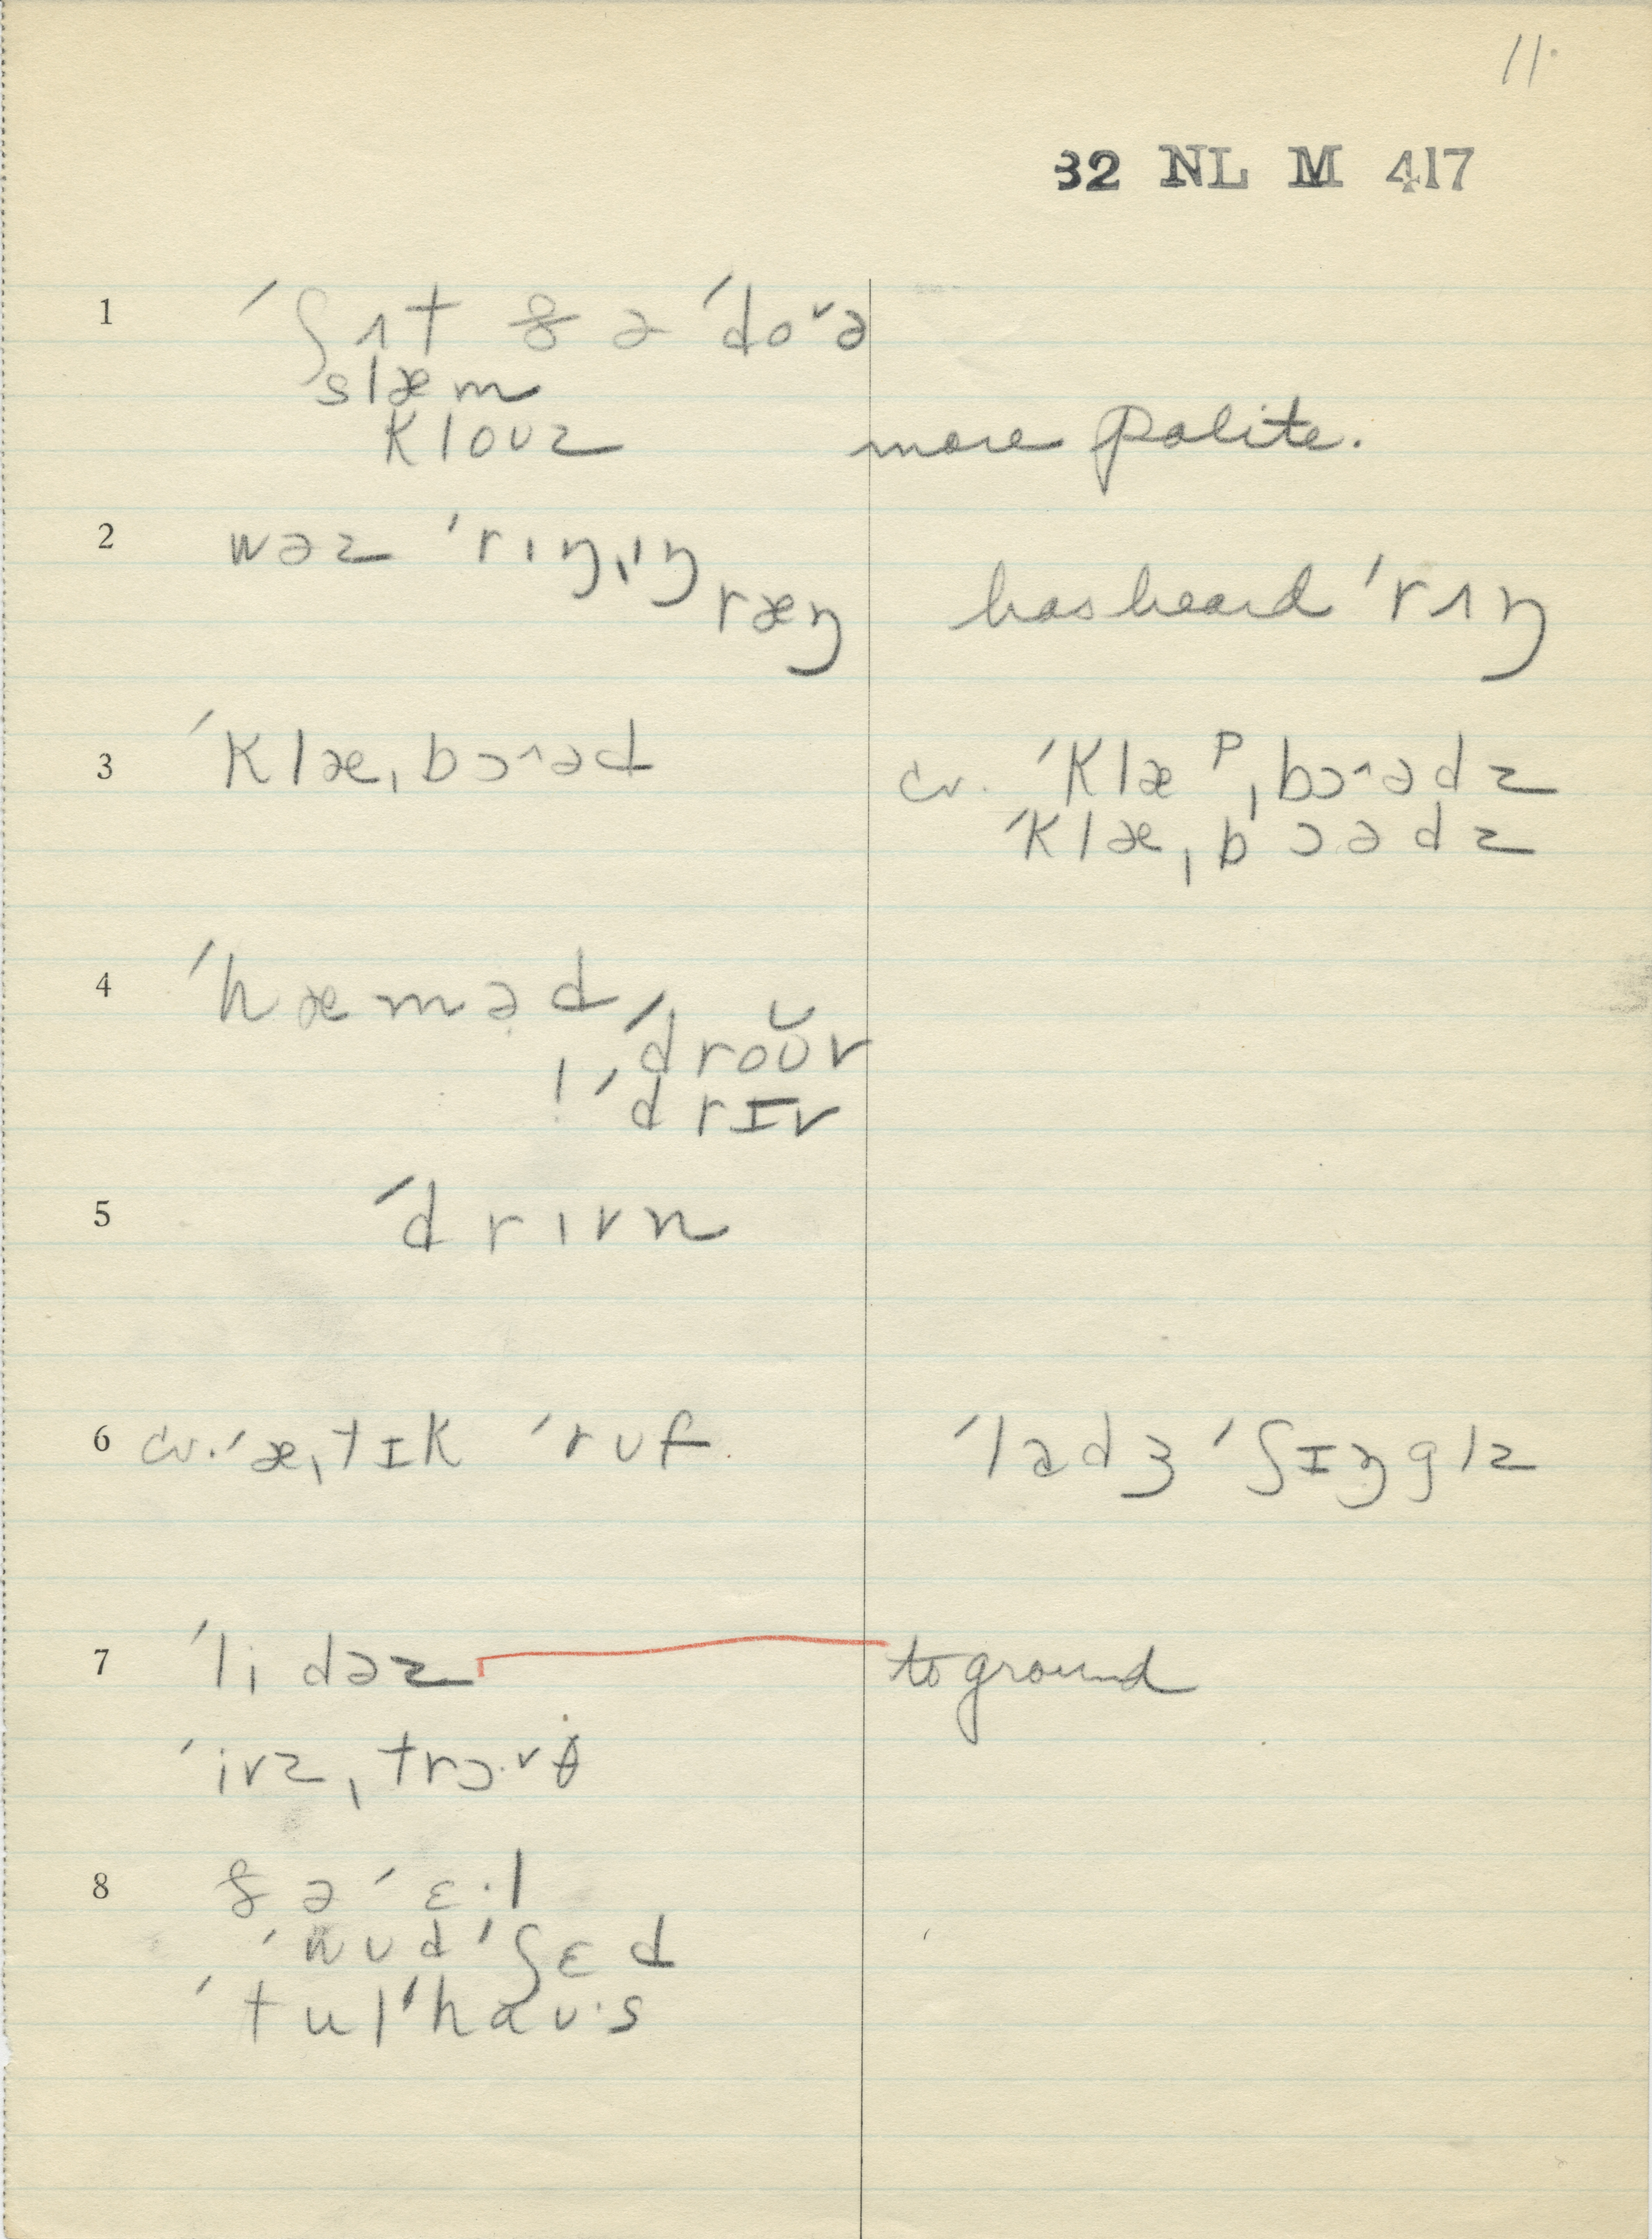 11.
32 NL M 417
1 ˈʃʌt ðə ˈdo˅ə
slæm
klouz more polite.
2 wəz ˈrɪŋˌɪŋ
ræŋ has heard ˈrʌŋ
3 ˈklæˌbɔ^əd cv. ˈklæᵖˌbɔ^ədz
ˈklæˌbɔədz
4 ˈhæməd
ˈdroŭv
! ˈdrɪv
5 ˈdrɪvn
6 cv. ˈæˌtɪk ˈrʊf. ˈladʒ ˈʃɪŋglz
7 ˈlidəz to ground
ˈivzˌtrɔ˅θ
8 ðə ˈɛ·l
ˈwʊd ˈʃɛd
ˈtulˈhaʊ·s